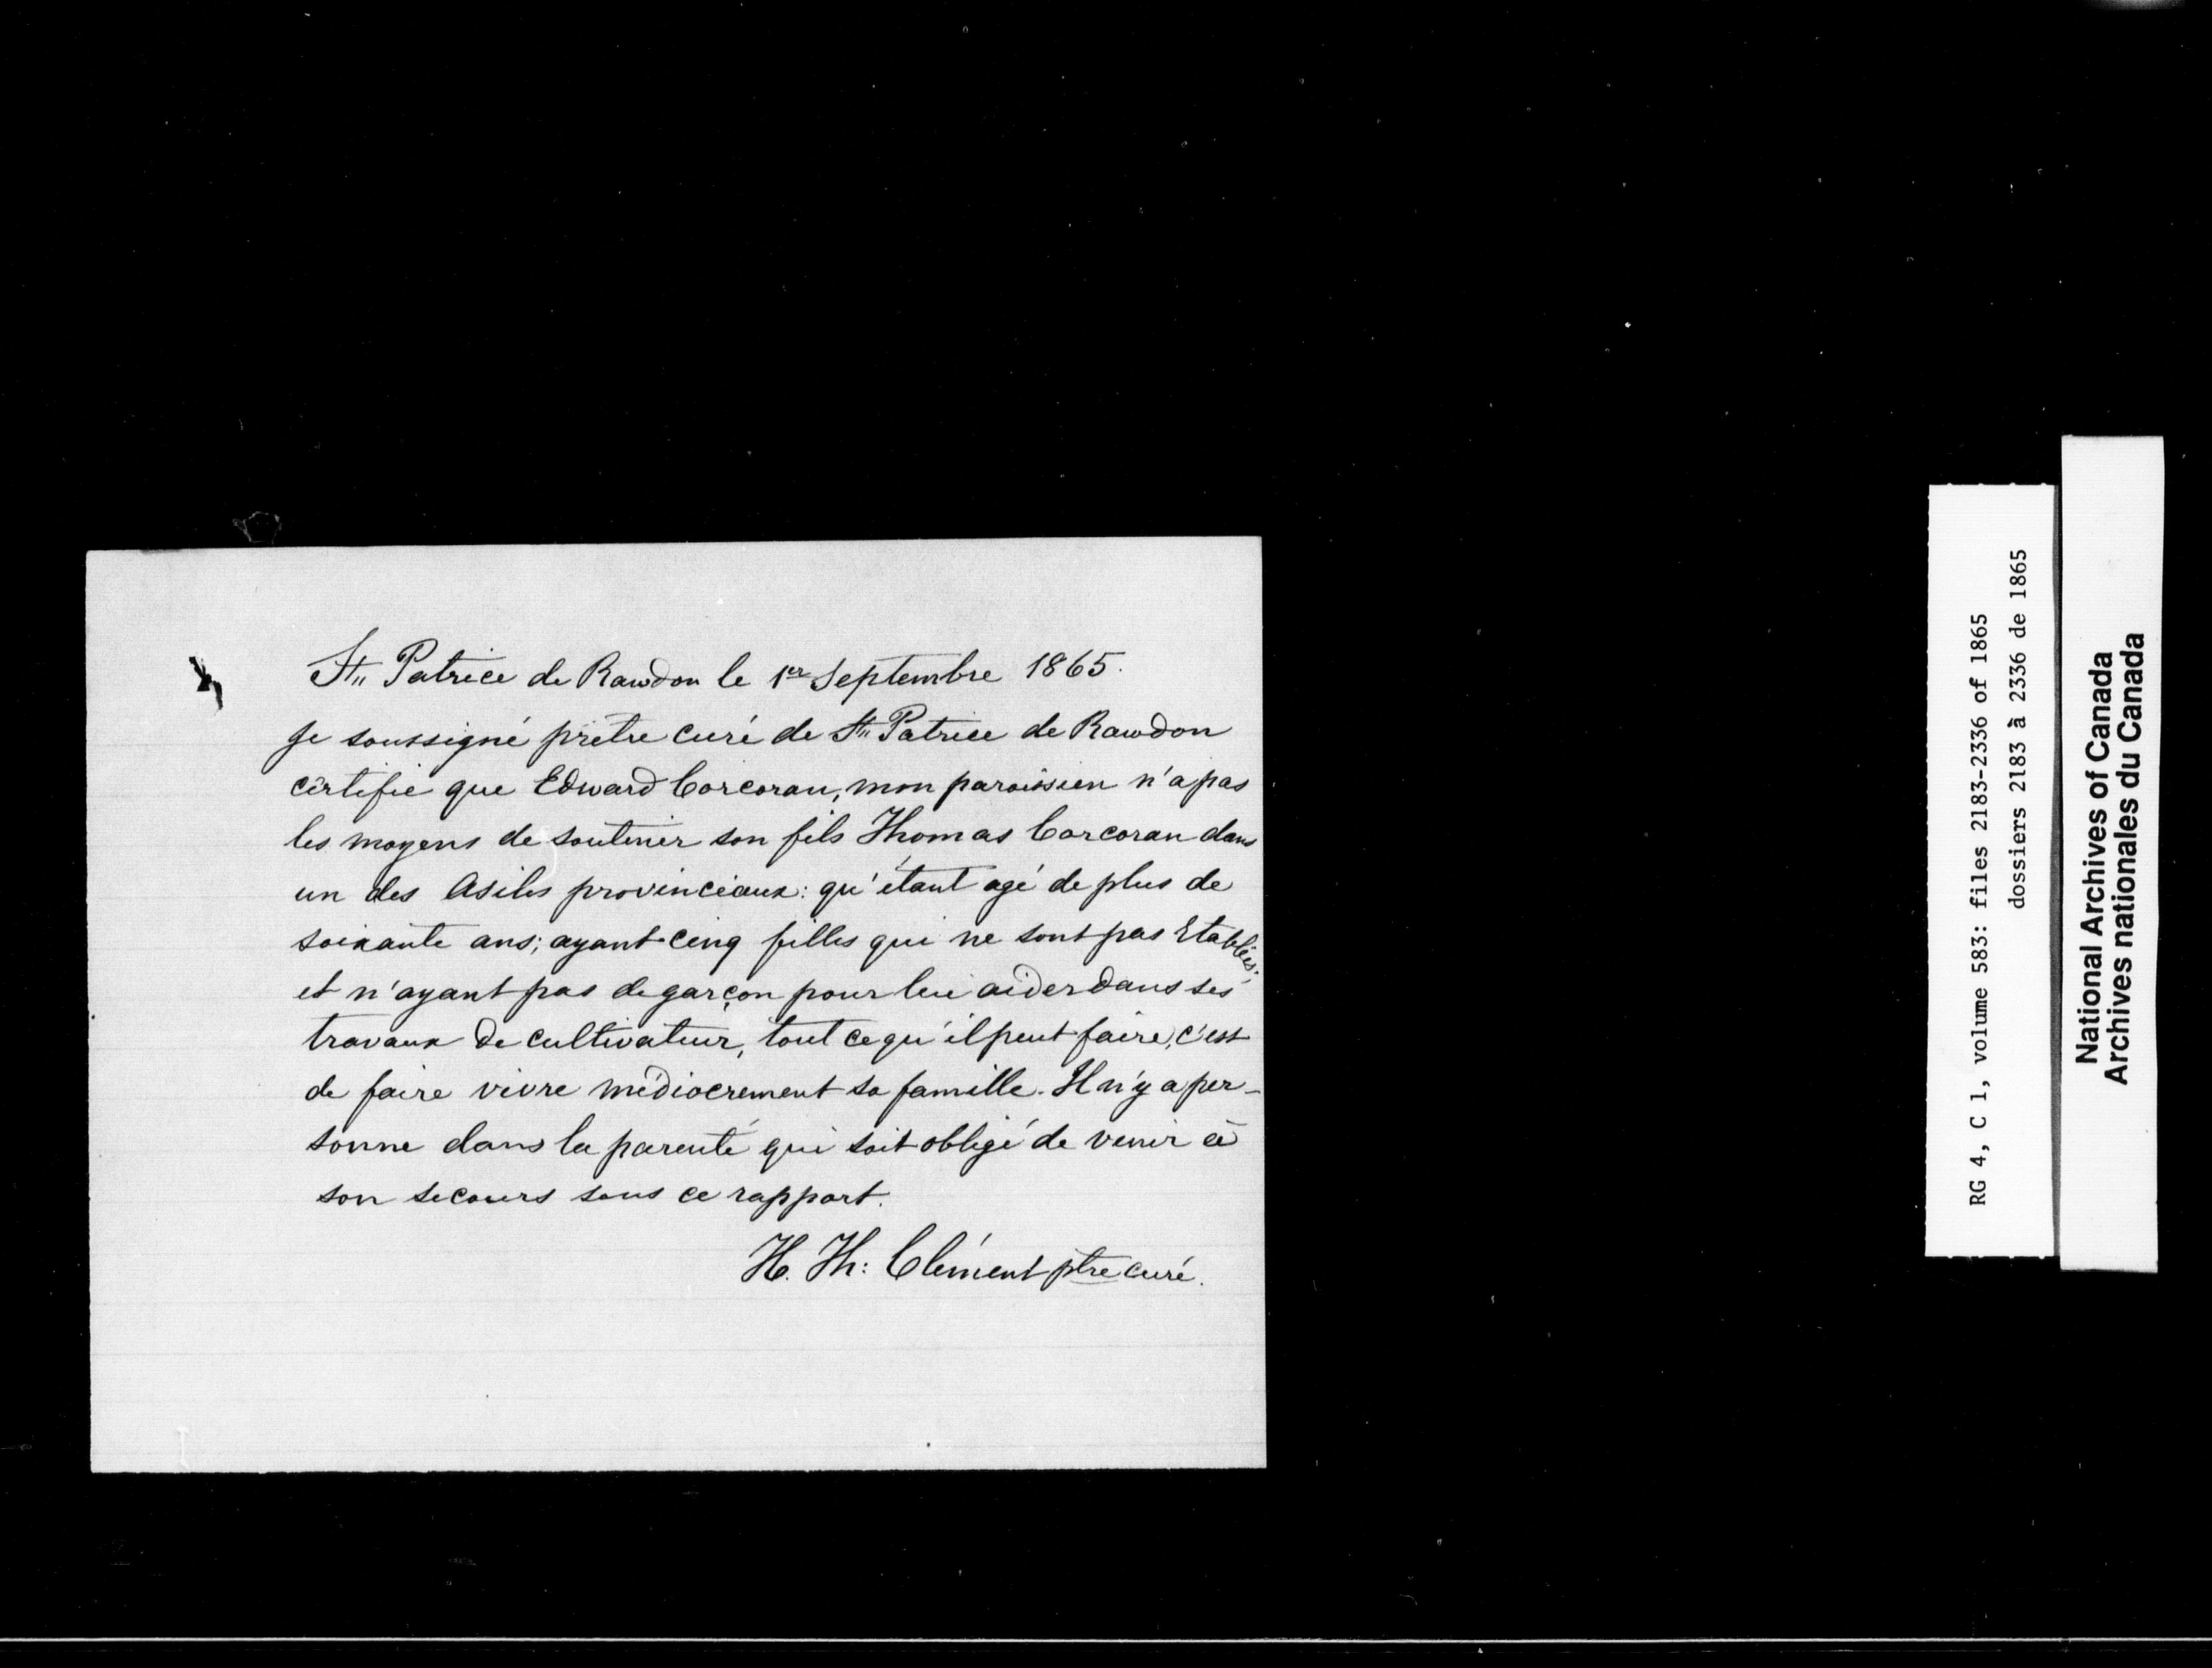 St,, Patrice de Rawdon le 1er Septembre 1865.
Je soussigné prêtre curé de St,, Patrice de Rawdon
certifie que Edward Corcoran, mon paroissien n'a pas
les moyens de soutenir son fils Thomas Corcoran dans
un des Asiles provinciaux: qu'étant agé de plus de
soixante ans; ayant cinq filles qui ne sont pas Etablies;
et n'ayant pas de garçon pour lui aider dans ses
travaux de cultivateur, tout ce qu'il peut faire, c'est
de faire vivre médiocrement sa famille. Il n'y a per-
sonne dans la parenté qui soit obligé de venir à
son secours sous ce rapport.
H. Th: Clément ptre curé.
RG 4, C 1, volume 583: files 2183-2336 of 1865
dossiers 2183 à 2336 de 1865
National Archives of Canada
Archives nationales du Canada